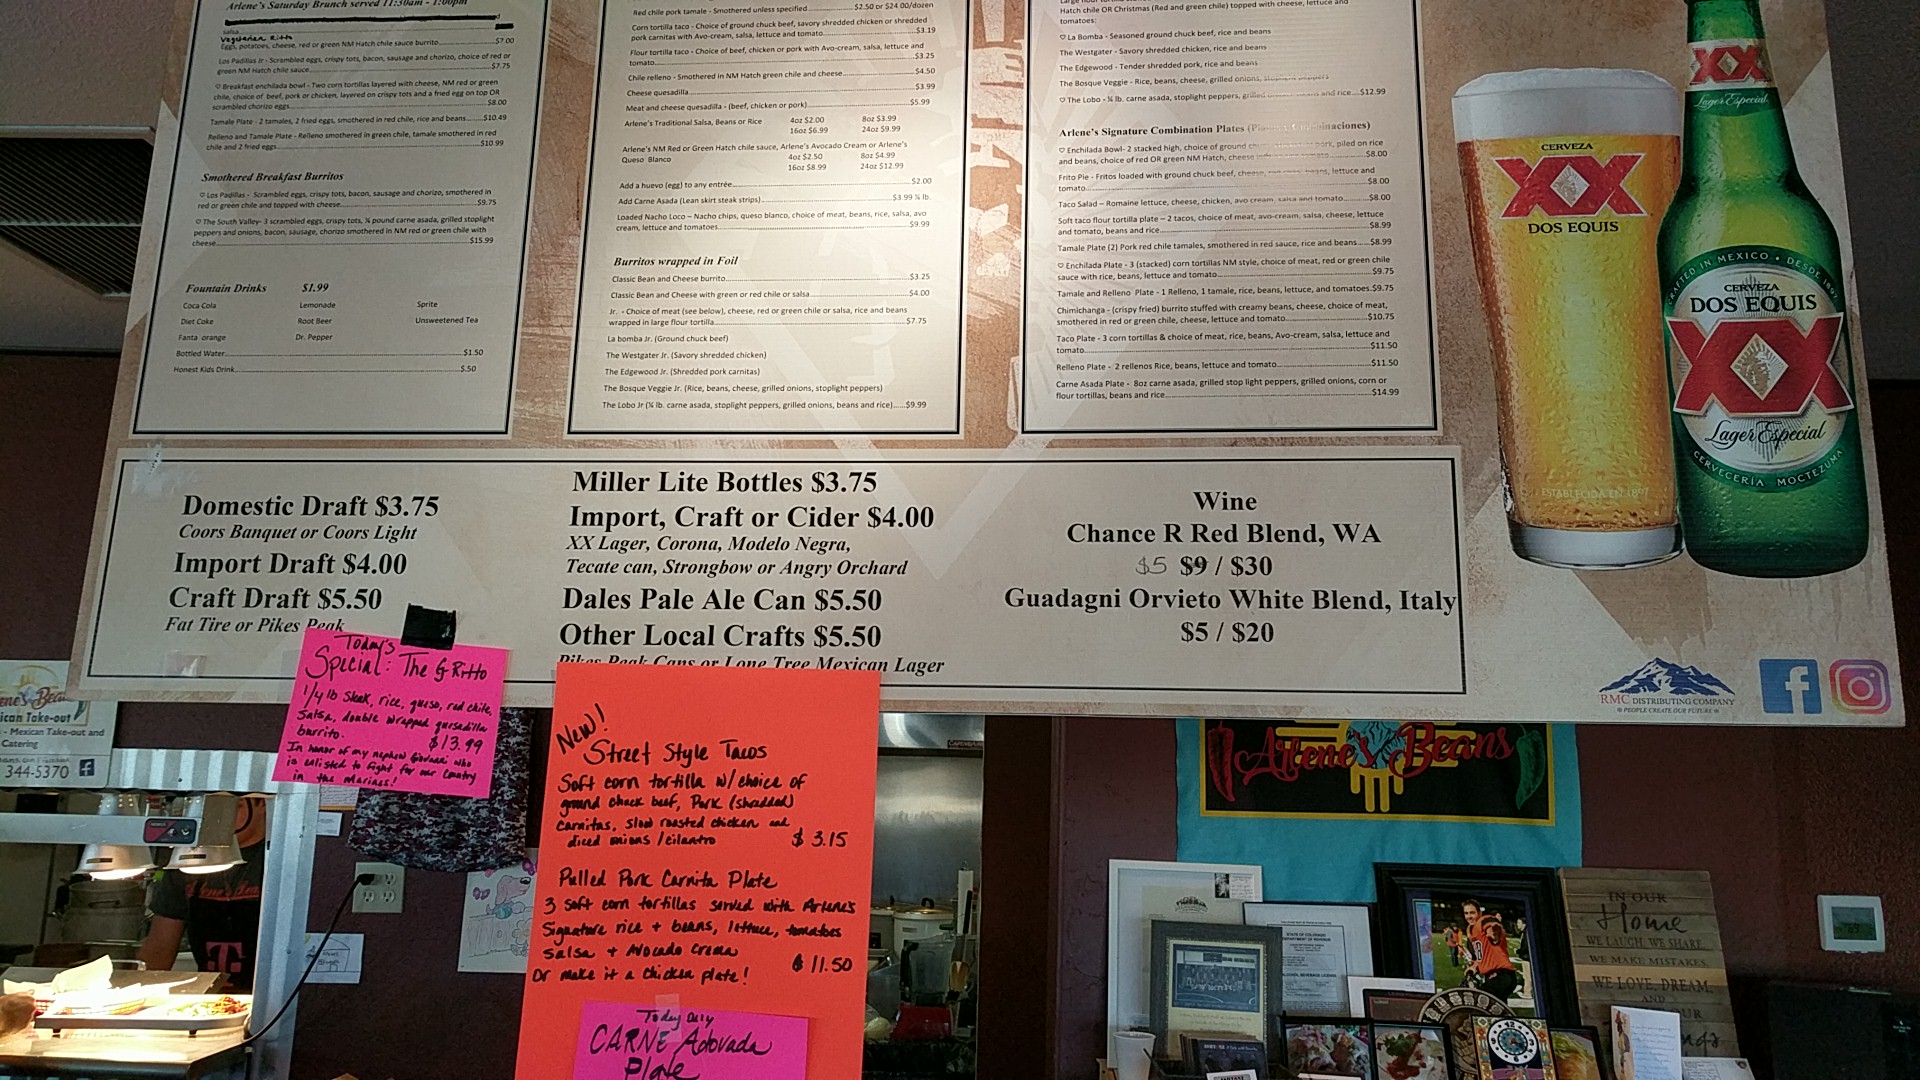 Arlene's Saturday Brunch served 11:30am - 1:00pm
salsa
Vegetarian Ritto
Eggs, potatoes, cheese, red or green NM Hatch chile sauce burrito $7.00
Los Padillas Jr - Scrambled eggs, crispy tots, bacon, sausage and chorizo, choice of red or
green NM Hatch chile sauce $7.75
Breakfast enchilada bowl - Two corn tortillas layered with cheese, NM red or green
chile, choice of beef, pork or chicken, layered on crispy tots and a fried egg on top OR
scrambled chorizo eggs $8.00
Tamale Plate - 2 tamales, 2 fried eggs, smothered in red chile, rice and beans $10.49
Relleno and Tamale Plate - Relleno smothered in green chile, tamale smothered in red
chile and 2 fried eggs $10.99
Smothered Breakfast Burritos
Los Padillas - Scrambled eggs, crispy tots, bacon, sausage and chorizo, smothered in
red or green chile and topped with cheese $9.75
The South Valley- 3 scrambled eggs, crispy tots, ¼ pound carne asada, grilled stoplight
peppers and onions, bacon, sausage, chorizo smothered in NM red or green chile with
cheese $15.99
Fountain Drinks $1.99
Coca Cola Lemonade Sprite
Diet Coke Root Beer Unsweetened Tea
Fanta orange Dr. Pepper
Bottled Water $1.50
Honest Kids Drink $.50
Red chile pork tamale - Smothered unless specified $2.50 or $24.00/dozen
Corn tortilla taco - Choice of ground chuck beef, savory shredded chicken or shredded
pork carnitas with Avo-cream, salsa, lettuce and tomato $3.19
Flour tortilla taco - Choice of beef, chicken or pork with Avo-cream, salsa, lettuce and
tomato $3.25
Chile relleno - Smothered in NM Hatch green chile and cheese $4.50
Cheese quesadilla $3.99
Meat and cheese quesadilla - (beef, chicken or pork) $5.99
Arlene's Traditional Salsa, Beans or Rice 4oz $2.00 8oz $3.99
16oz $6.99 24oz $9.99
Arlene's NM Red or Green Hatch chile sauce, Arlene's Avocado Cream or Arlene's
Queso Blanco 4oz $2.50 8oz $4.99
16oz $8.99 24oz $12.99
Add a huevo (egg) to any entrée $2.00
Add Carne Asada (Lean skirt steak strips) $3.99 ¼ lb.
Loaded Nacho Loco – Nacho chips, queso blanco, choice of meat, beans, rice, salsa, avo
cream, lettuce and tomatoes $9.99
Burritos wrapped in Foil
Classic Bean and Cheese burrito $3.25
Classic Bean and Cheese with green or red chile or salsa $4.00
Jr. - Choice of meat (see below), cheese, red or green chile or salsa, rice and beans
wrapped in large flour tortilla $7.75
La bomba Jr. (Ground chuck beef)
The Westgater Jr. (Savory shredded chicken)
The Edgewood Jr. (Shredded pork carnitas)
The Bosque Veggie Jr. (Rice, beans, cheese, grilled onions, stoplight peppers)
The Lobo Jr (¼ lb. carne asada, stoplight peppers, grilled onions, beans and rice) $9.99
Hatch chile OR Christmas (Red and green chile) topped with cheese, lettuce and
tomatoes:
La Bomba - Seasoned ground chuck beef, rice and beans
The Westgater - Savory shredded chicken, rice and beans
The Edgewood - Tender shredded pork, rice and beans
The Bosque Veggie - Rice, beans, cheese, grilled onions, stoplight peppers
The Lobo - ¼ lb. carne asada, stoplight peppers, grilled onions, beans and rice $12.99
Arlene's Signature Combination Plates
Enchilada Bowl- 2 stacked high, choice of ground piled on rice
and beans, choice of red OR green NM Hatch, cheese $8.00
Frito Pie - Fritos loaded with ground chuck beef, cheese, lettuce and
tomato $8.00
Taco Salad – Romaine lettuce, cheese, chicken, avo cream, salsa and tomato $8.00
Soft taco flour tortilla plate – 2 tacos, choice of meat, avo-cream, salsa, cheese, lettuce
and tomato, beans and rice $8.99
Tamale Plate (2) Pork red chile tamales, smothered in red sauce, rice and beans $8.99
Enchilada Plate - 3 (stacked) corn tortillas NM style, choice of meat, red or green chile
sauce with rice, beans, lettuce and tomato $9.75
Tamale and Relleno Plate - 1 Relleno, 1 tamale, rice, beans, lettuce, and tomatoes $9.75
Chimichanga - (crispy fried) burrito stuffed with creamy beans, cheese, choice of meat,
smothered in red or green chile, cheese, lettuce and tomato $10.75
Taco Plate - 3 corn tortillas & choice of meat, rice, beans, Avo-cream, salsa, lettuce and
tomato $11.50
Relleno Plate - 2 rellenos Rice, beans, lettuce and tomato $11.50
Carne Asada Plate - 8oz carne asada, grilled stop light peppers, grilled onions, corn or
flour tortillas, beans and rice $14.99
Domestic Draft $3.75
Coors Banquet or Coors Light
Import Draft $4.00
Craft Draft $5.50
Fat Tire or Pikes Peak
Miller Lite Bottles $3.75
Import, Craft or Cider $4.00
XX Lager, Corona, Modelo Negra,
Tecate can, Strongbow or Angry Orchard
Dales Pale Ale Can $5.50
Other Local Crafts $5.50
Pikes Peak Cans or Lone Tree Mexican Lager
Wine
Chance R Red Blend, WA
$5 $9 / $30
Guadagni Orvieto White Blend, Italy
$5 / $20
CERVEZA
XX
DOS EQUIS
ESTABLECIDA EN 1897
XX
Lager Especial
CRAFTED IN MEXICO • DESDE 1897
CERVEZA
DOS EQUIS
XX
Lager Especial
CERVECERÍA MOCTEZUMA
RMC DISTRIBUTING COMPANY
PEOPLE CREATE OUR FUTURE
Today's
Special: The G Ritto
1/4 lb Steak, rice, queso, red chile,
Salsa, double wrapped quesadilla
burrito. $13.99
In honor of my nephew Giovanni who
is enlisted to fight for our Country
in the Marines!
New!
Street Style Tacos
Soft corn tortilla w/choice of
ground chuck beef, Pork (shredded)
Carnitas, slow roasted chicken and
diced onions / cilantro $3.15
Pulled Pork Carnita Plate
3 soft corn tortillas served with Arlene's
Signature rice + beans, lettuce, tomatoes
Salsa + Avocado Crema
Or make it a chicken plate! $11.50
Today Only
CARNE Adovada
Plate
Mexican Take-out and
Catering
344-5370
Arlene's Beans
STATE OF COLORADO
DEPARTMENT OF REVENUE
IN OUR
Home
WE LAUGH, WE SHARE,
WE MAKE MISTAKES,
WE LOVE, DREAM,
AND